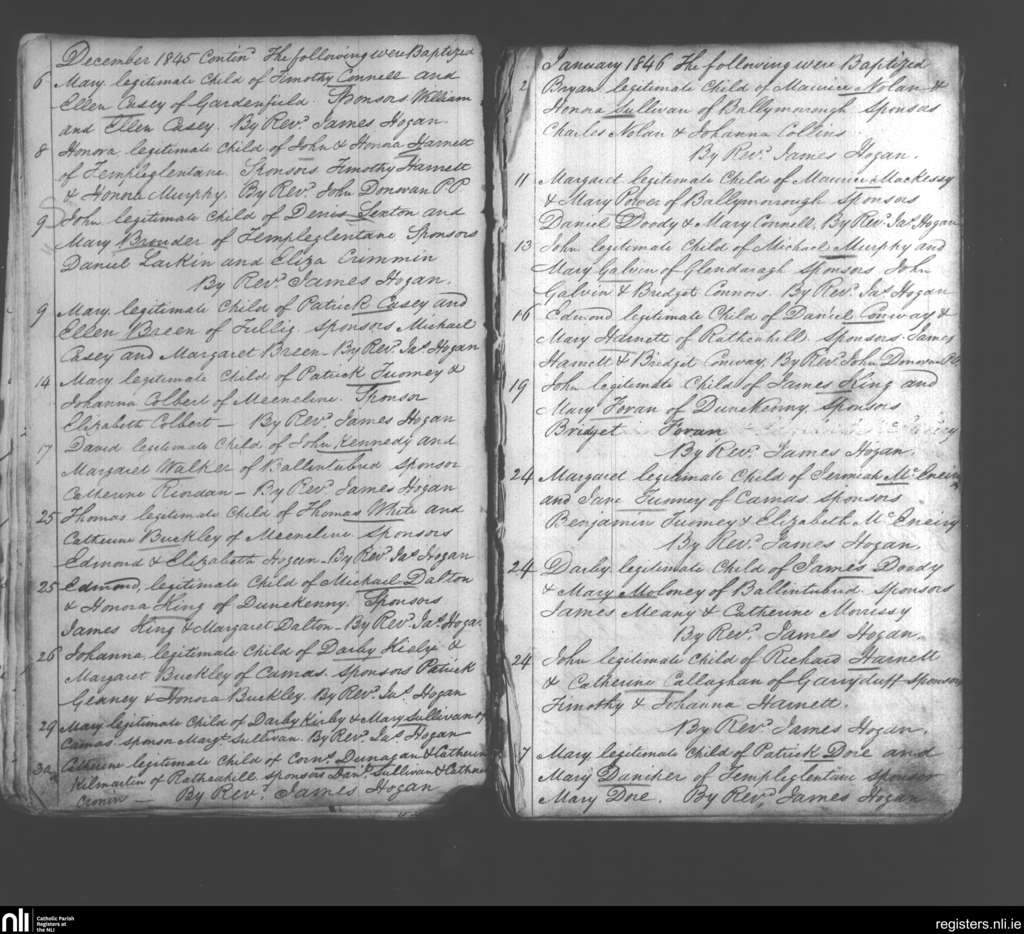 December 1845 Contind The following were Baptized
6 Mary legitimate Child of Timothy Connell and
Ellen Casey of Gardenfield. Sponsors William
and Ellen Casey. By Revd. James Hogan
8 Honora legitimate Child of John & Honora Harnett
of Templeglentane. Sponsors Timothy Harnett
& Honora Murphy. By Revd. John Donovan PP
9 John legitimate Child of Denis Sexton and
Mary Brouder of Templeglentane Sponsors
Daniel Larkin and Eliza Crimmin
By Revd. James Hogan.
9 Mary legitimate Child of Patrick Casey and
Ellen Breen of Tullig. Sponsors Michael
Casey and Margaret Breen. By Revd. Jas. Hogan
14 Mary legitimate Child of Patrick Tuomey &
Johanna Colbert of Meeneline. Sponsor
Elizabeth Colbert — By Revd. James Hogan
17 David legitimate Child of John Kennedy and
Margaret Walker of Ballintubrid Sponsor
Catherine Riordan — By Revd. James Hogan
25 Thomas legitimate Child of Thomas White and
Catherine Buckley of Meeneline. Sponsors
Edmond & Elizabeth — By Revd. Jas. Hogan
25 Edmond, legitimate Child of Michael Dalton
& Honora King of Dunekenny. Sponsors
James King & Margaret Dalton. By Revd. Jas. Hogan
26 Johanna, legitimate Child of Darby &
Margaret Buckley of Camas. Sponsors Patrick
Geaney & Honora Buckley. By Revd. Jas. Hogan
29 Mary legitimate Child of Darby Kirby & Mary Sullivan of
Camas. Sponsor Margt. Sullivan. By Revd. Jas. Hogan
30 Catherine legitimate Child of Corns. Dunagan & Catherine
Kilmartin of Ratheahill. Sponsors Danl. Sullivan & Catherine
Cronin — By Revd. James Hogan
January 1846 The following were Baptized
2 Bryan legitimate Child of Maurice Nolan &
Honora Sullivan of Ballymorough Sponsors
Charles Nolan & Johanna Collins
By Revd. James Hogan.
11 Margaret legitimate Child of Maurice Mackessy
& Mary Power of Ballymorough Sponsors
Daniel Doody & Mary Connell. By Revd. Jas. Hogan
13 John legitimate Child of Michael Murphy and
Mary Galvin of Glendaragh Sponsors John
Galvin & Bridget Connors. By Revd. Jas. Hogan
16 Edmond legitimate Child of Daniel Conway &
Mary Harnett of Ratheahill. Sponsors James
Harnett & Bridget Conway. By Revd. John Donovan P.P.
19 John legitimate Child of James King and
Mary Foran of Dunekenny. Sponsors
Bridget Foran
By Revd. James Hogan.
24 Margaret legitimate Child of Jeremiah McEneiry
and Jane Tuomey of Camas Sponsors
Benjamin Tuomey & Elizabeth McEneiry
By Revd. James Hogan.
24 Darby legitimate Child of James Doody
& Mary Moloney of Ballintubrid. Sponsors
James Meany & Catherine Morrissy
By Revd. James Hogan.
24 John legitimate Child of Richard Harnett
& Catherine Callaghan of Garryduff Sponsors
Timothy & Johanna Harnett.
By Revd. James Hogan.
7 Mary legitimate Child of Patrick Dore and
Mary Danaher of Templeglentane Sponsor
Mary Dore. By Revd. James Hogan
nli Catholic Parish
Registers at
the NLI
registers.nli.ie